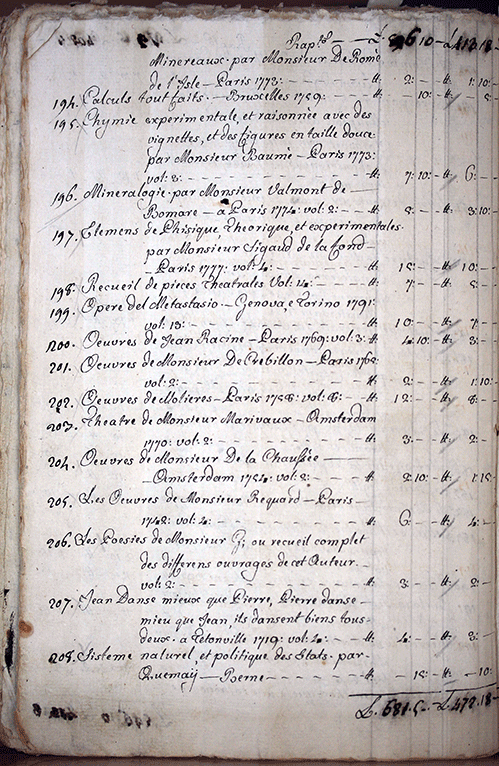 Rap.to — £ 6 10 - £ 413.18 -
Minereaux. par Monsieur De Romé
de l'Isle — Paris 1773: — tt: 2: - - tt: 1: 10:
194. Calculs tout faits. — Bruxelles 1759: — tt: - 10: - tt: - 5: -
195. Chymie experimentale, et raisonnée avec des
vignettes, et des figures en taille douce
par Monsieur Baumé — Paris 1773:
vol: 3: — tt: 7: 10: - tt: 6: -
196. Mineralogie. par Monsieur Valmont de
Bomare. — a Paris 1774: vol: 2: — tt: 5: - - tt: 3: 10:
197. Elemens de Phisique, theorique, et experimentales
par Monsieur Sigaud de la fond —
— Paris 1777: vol: 4: — tt: 15: - - tt: 10: -
198. Recueil de pieces theatrales Vol: 14: — tt: 7: - - tt: 5: -
199. Opere del Metastasio — Genova, e Torino 1791:
vol: 13: — tt: 10: - - tt: 7: -
200. Oeuvres de Jean Racine — Paris 1769: vol: 3: tt: 4: 10: - tt: 3: -
201. Oeuvres de Monsieur De Crebillon — Paris
vol: 2: — tt: 2: - - tt: 1: 10:
202. Oeuvres de Molieres — Paris 1758: vol: 8: — tt: 12: - - tt: 8: -
203. Theatre de Monsieur Marivaux — Amsterdam
1770: vol: 2: — tt: 3: - - tt: 2: -
204. Oeuvre de Monsieur De la Chaussée —
— Amsterdam 1754: vol: 2: — tt: 2: 10: - tt: 1: 15:
205. Les Oeuvres de Monsieur Regnard — Paris —
vol: 4: — tt: 6: - - tt: 4: -
206. Les Poesies de Monsieur ou recueil complet
des differens ouvrages de cet Auteur
vol: 2: — tt: 3: - - tt: 2: -
207. Jean Danse mieux que Pierre, Pierre danse
mieu que Jean, ils dansent biens tous
deux. a Tetonville 1719: vol: 4: — tt: 4: - - tt: 3: -
208. Sisteme naturel, et politique des Etats. par
— Berne — tt: - 15: - tt: - 10: -
£. 681. 5. - £. 472. 18 -